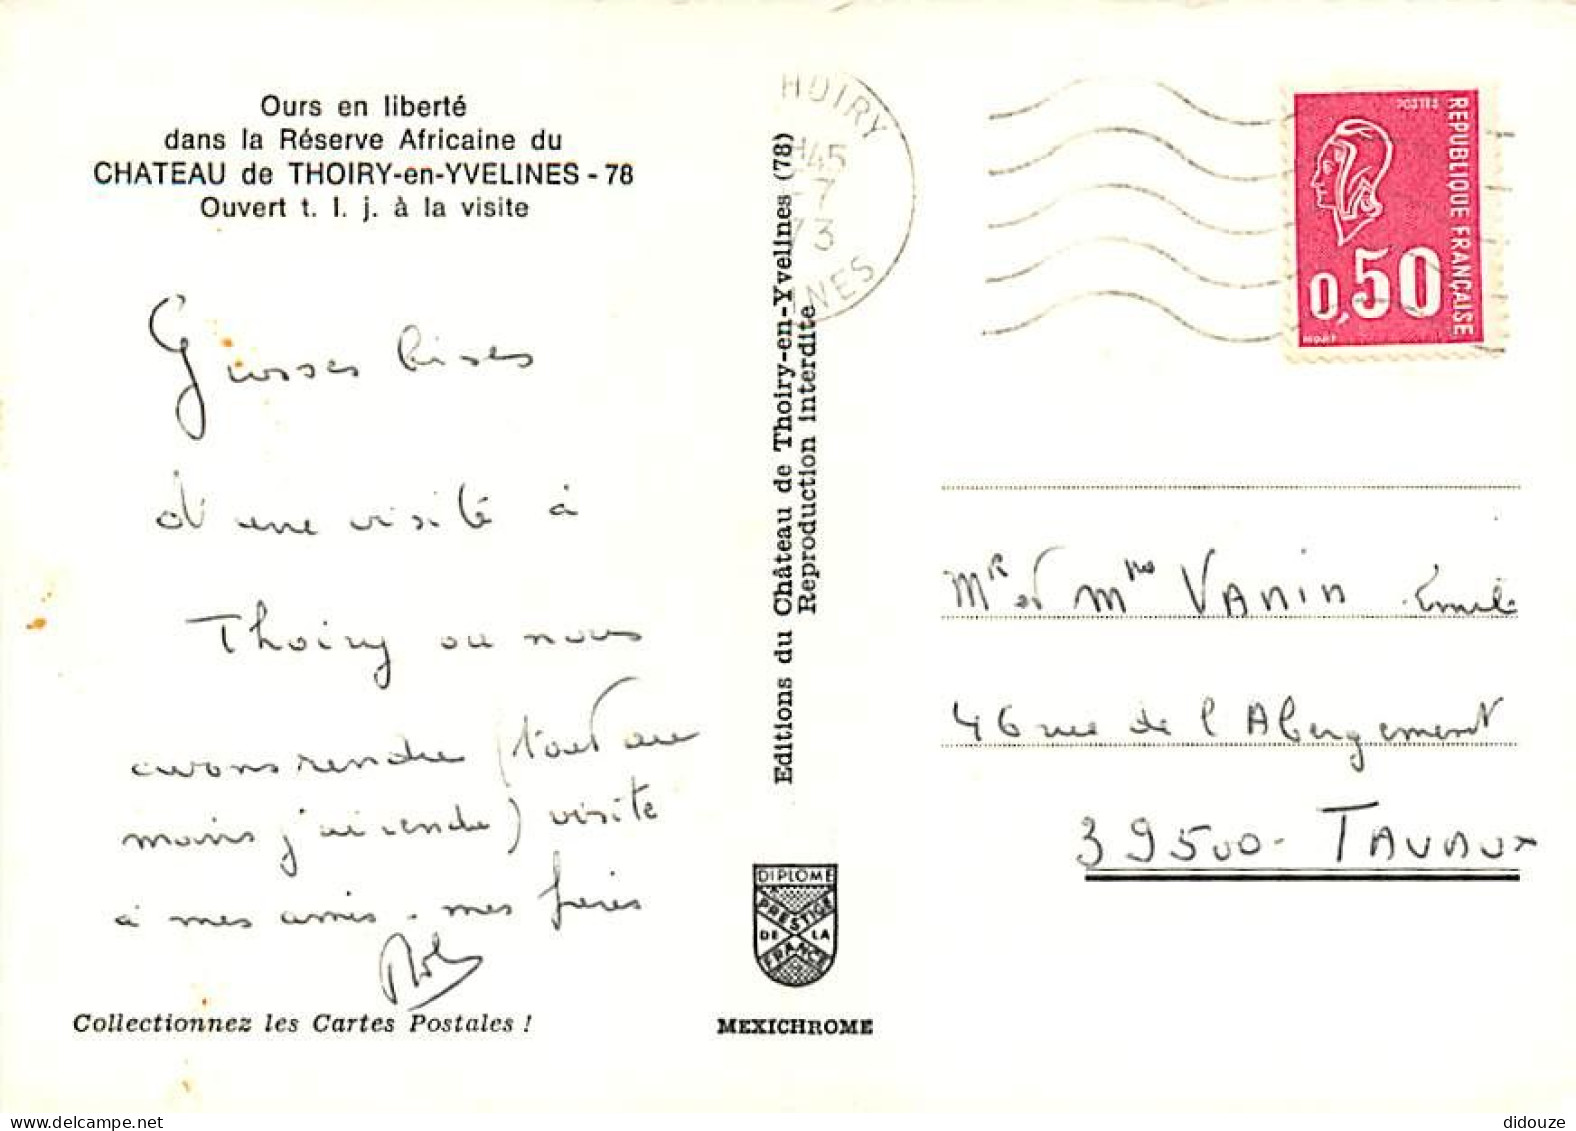 Ours en liberté
dans la Réserve Africaine du
CHATEAU de THOIRY-en-YVELINES - 78
Ouvert t. l. j. à la visite
Grosses bises
d'une visite à
Thoiry ou nous
avons rendre (tout au
moins j'ai rendu) visite
à mes amis. mes frères
Collectionnez les Cartes Postales !
Editions du Château de Thoiry-en-Yvelines (78)
Reproduction interdite
DIPLOME
PRESTIGE
DE LA
FRANCE
MEXICHROME
HOIRY
H45
-7
73
INES
POSTES
REPUBLIQUE FRANÇAISE
0,50
Mr et Mme VANIN Emile
46 rue de l'Abergement
39500 - TAVAUX
didouze